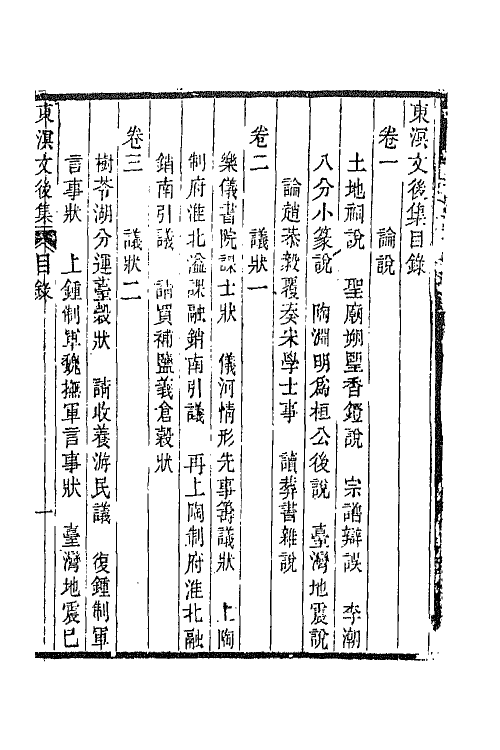 東溟文後集目錄
卷一　　論說
土地祠說　聖廟朔望香鐙說　宗譜辯誤　李潮
八分小篆說　陶淵明爲桓公後說　臺灣地震說
論趙恭毅覆奏宋學士事　讀葬書雜說
卷二　　議狀一
樂儀書院課士狀　儀河情形先事籌議狀　上陶
制府淮北溢課融銷南引議　再上陶制府淮北融
銷南引議　請買補鹽義倉穀狀
卷三　　議狀二
樹苓湖分運臺穀狀　請收養游民議　復鍾制軍
言事狀　上鍾制軍魏撫軍言事狀　臺灣地震已
東溟文後集　目錄　一